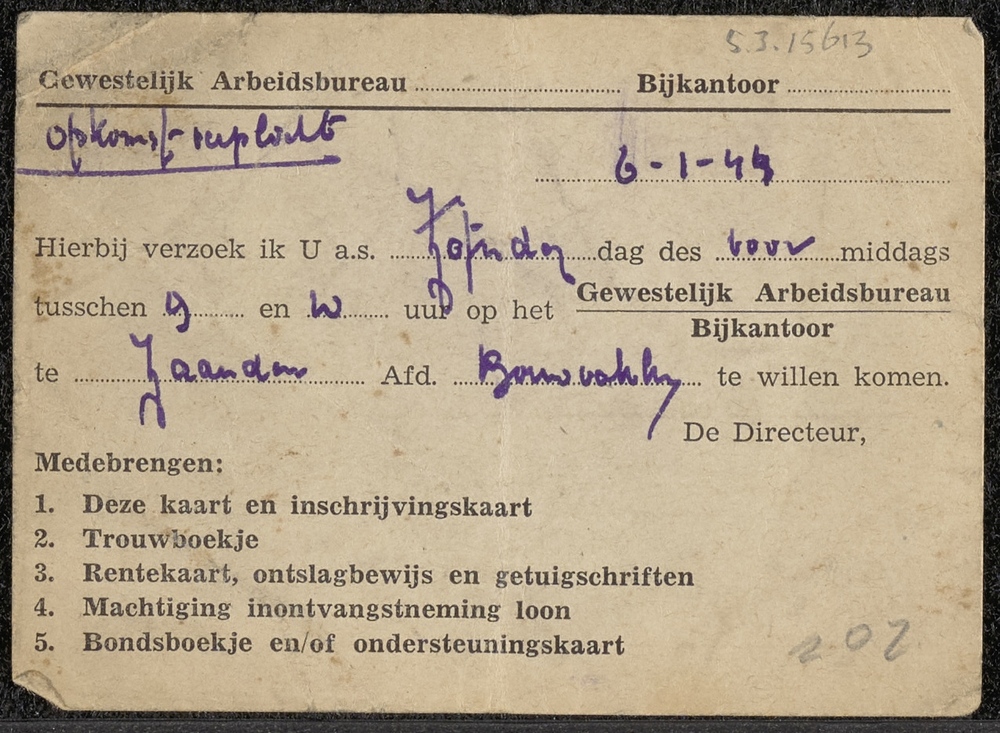 5.3.15613
Gewestelijk Arbeidsbureau ........ Bijkantoor ........
Opkomst verplicht
6-1-44
Hierbij verzoek ik U a.s. ........ dag des voor middags
tusschen 9 en uur op het Gewestelijk Arbeidsbureau
Bijkantoor
te Zaandam Afd. Bouwvakken te willen komen.
De Directeur,
Medebrengen:
1. Deze kaart en inschrijvingskaart
2. Trouwboekje
3. Rentekaart, ontslagbewijs en getuigschriften
4. Machtiging inontvangstneming loon
5. Bondsboekje en/of ondersteuningskaart
202